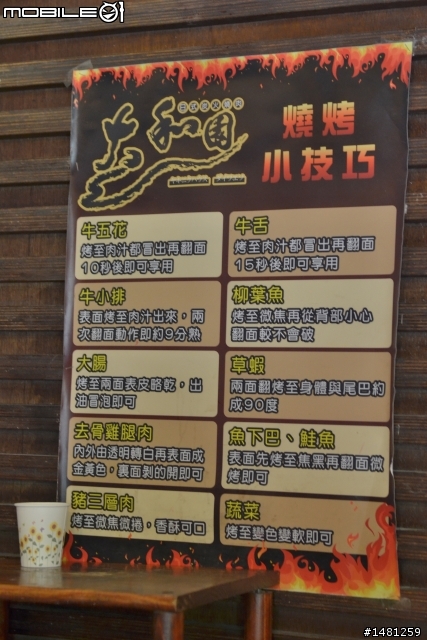 MOBILE01
大和園
燒烤
小技巧
牛五花
烤至肉汁都冒出再翻面
10秒後即可享用
牛舌
烤至肉汁都冒出再翻面
15秒後即可享用
牛小排
表面烤至肉汁出來，兩
次翻面動作即約9分熟
柳葉魚
烤至微焦再從背部小心
翻面較不會破
大腸
烤至兩面表皮略乾，出
油冒泡即可
草蝦
兩面翻烤至身體與尾巴約
成90度
去骨雞腿肉
內外由透明轉白再表面成
金黃色，裏面剝的開即可
魚下巴、鮭魚
表面先烤至焦黑再翻面微
烤即可
豬三層肉
烤至微焦微捲，香酥可口
蔬菜
烤至變色變軟即可
#1481259